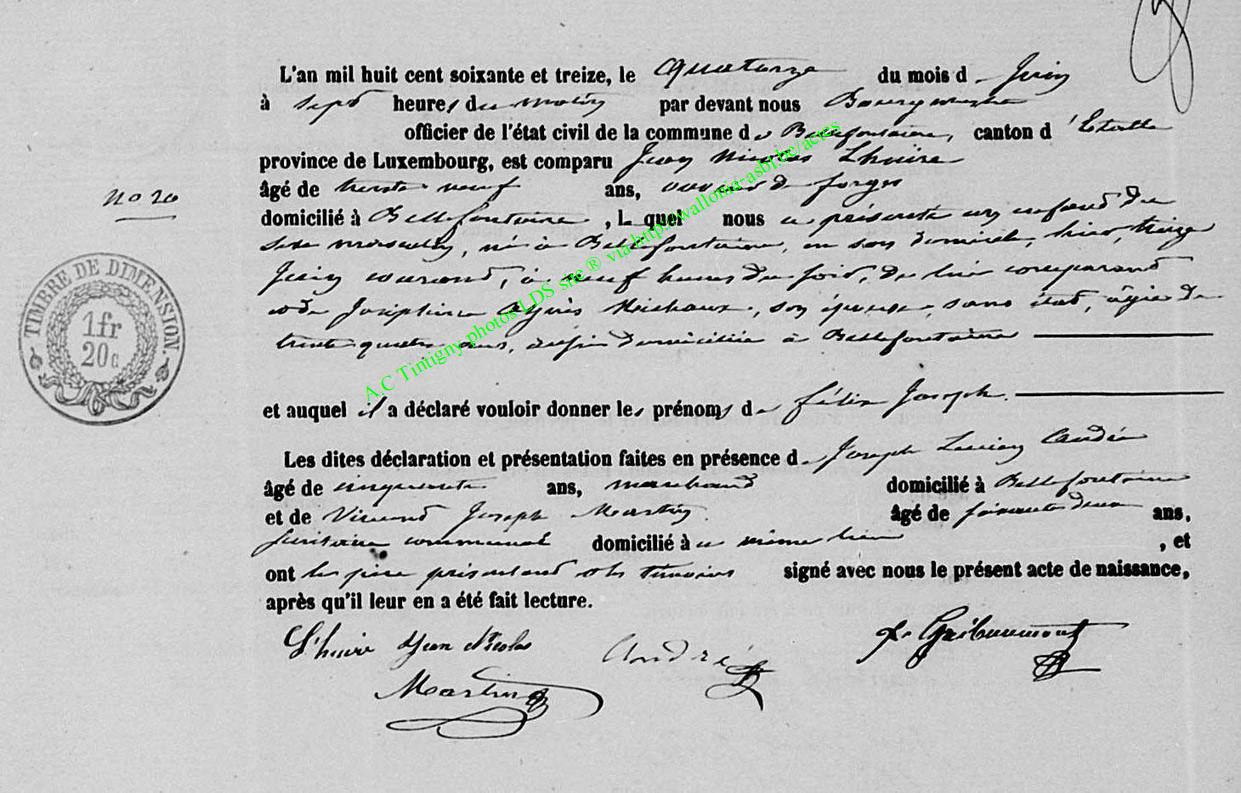 L'an mil huit cent soixante et treize, le Quatorze du mois de Juin
à sept heures du matin par devant nous Bourgmestre
officier de l'état civil de la commune de Bellefontaine, canton d'Etalle
province de Luxembourg, est comparu Jean Nicolas Lhuire
No 20
âgé de trente neuf ans, ouvrier de forges
domicilié à Bellefontaine, Lequel nous a présenté un enfant du
sexe masculin, né à Bellefontaine, en son domicile, hier, treize
Juin courant, à neuf heures du soir, de lui comparant
et de Joséphine Agnès Michaux, son épouse, sans état, âgée de
trente quatre ans, aussi domiciliée à Bellefontaine
et auquel il a déclaré vouloir donner les prénoms de Félix Joseph.
Les dites déclaration et présentation faites en présence de Joseph Lucien André
âgé de cinquante ans, marchand domicilié à Bellefontaine
et de Vincent Joseph Martin âgé de soixante deux ans,
secrétaire communal domicilié à u même lieu, et
ont les père présentant et les témoins signé avec nous le présent acte de naissance,
après qu'il leur en a été fait lecture.
L'huire Jean Nicolas André Gribaumont
Martin
TIMBRE DE DIMENSION.
1 fr
20 c
A.C Tintigny photos LDS site ® via http:wallonia-asbl.be/actes